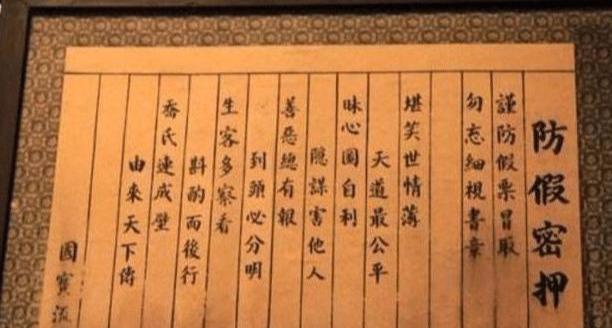 防假密押
謹防假票冒取
勿忘細視書章
堪笑世情薄
天道最公平
昧心圖自利
隱謀害他人
善惡總有報
到頭必分明
生客多察看
斟酌而後行
喬氏連成壁
由來天下傳
國寶流